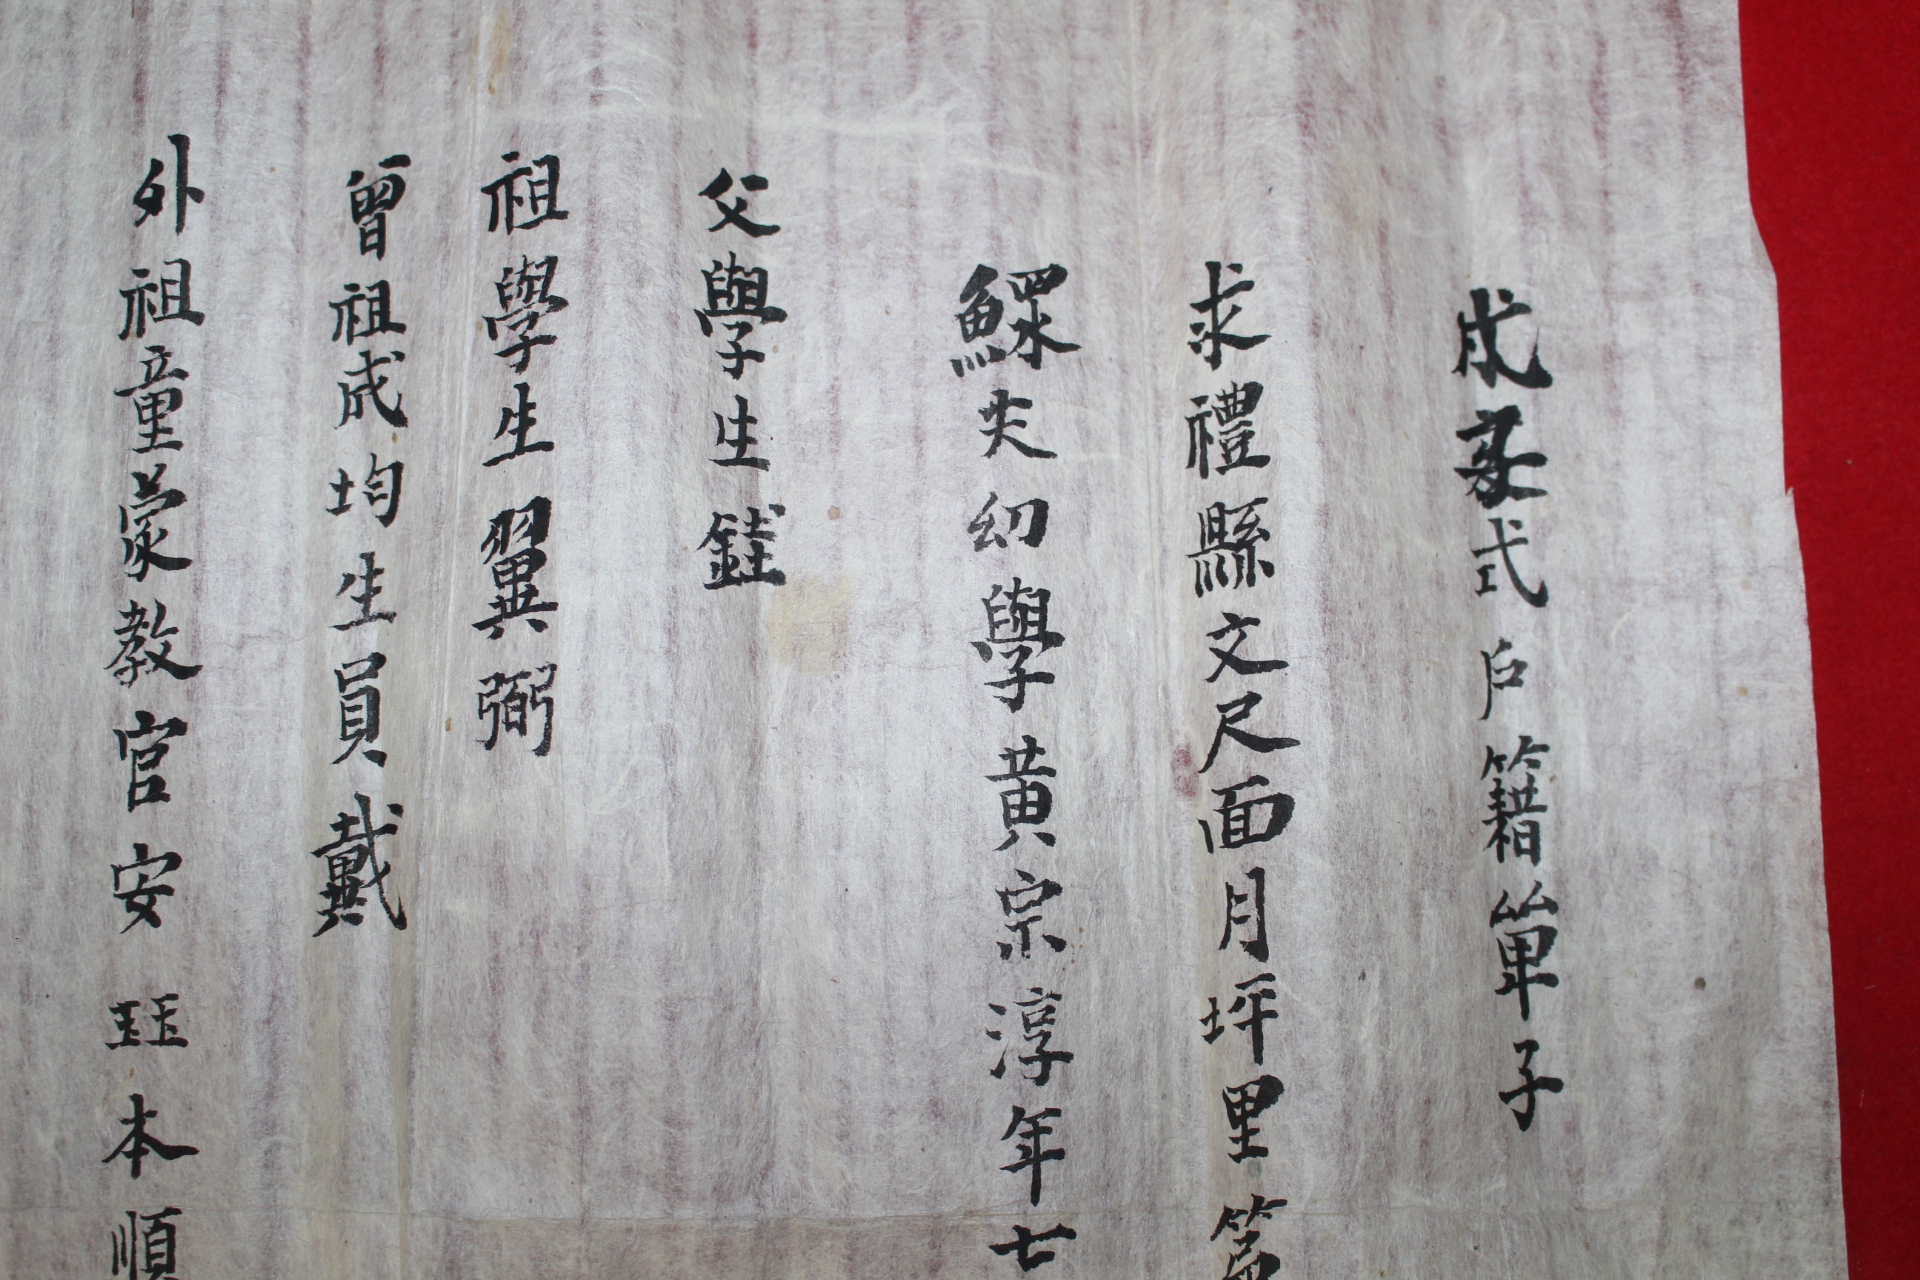 戌式戶籍單子
求禮縣文尺面月坪里第
鰥夫幼學黃宗淳年七
父學生銈
祖學生翼弼
曾祖成均生員戴
外祖童蒙敎官安玨本順